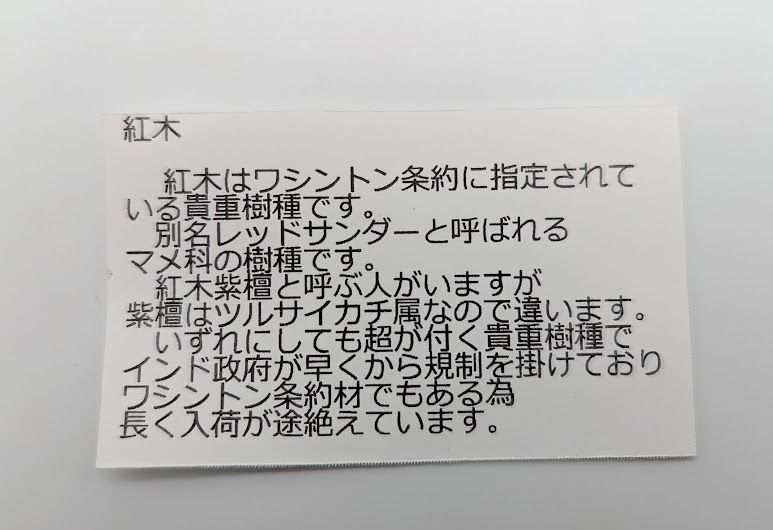 紅木
紅木はワシントン条約に指定されて
いる貴重樹種です。
別名レッドサンダーと呼ばれる
マメ科の樹種です。
紅木紫檀と呼ぶ人がいますが
紫檀はツルサイカチ属なので違います。
いずれにしても超が付く貴重樹種で
インド政府が早くから規制を掛けており
ワシントン条約材でもある為
長く入荷が途絶えています。